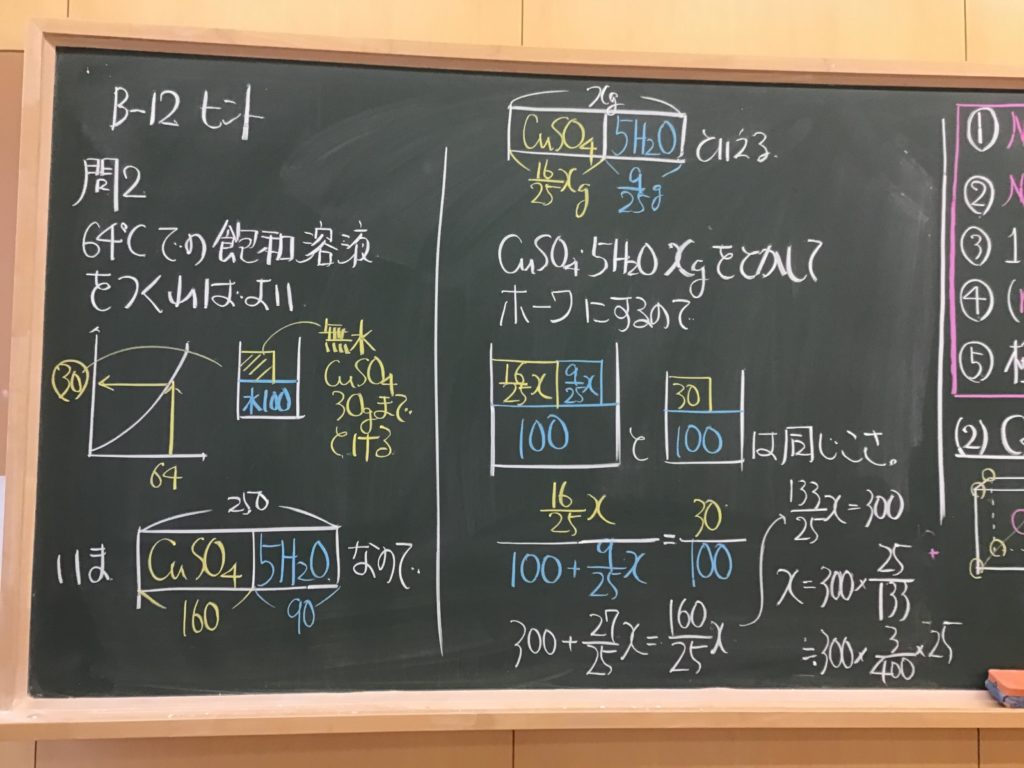 B-12 ヒント
問2
64℃での飽和溶液
をつくればよい
30
64
水100
無水
CuSO₄
30gまで
とける
250
いま CuSO₄ 5H₂O なので
160 90
xg
CuSO₄ 5H₂O といえる
16/25 xg 9/25 g
CuSO₄・5H₂O xgをとかして
ホーワにするので
16/25 x 9/25 x 30
100 と 100 は同じこさ。
(16/25 x)/(100 + 9/25 x) = 30/100
300 + 27/25 x = 160/25 x
133/25 x = 300
x = 300 × 25/133
≒ 300 × 3/400 × 25
① N
②
③ 1
④ (
⑤ 極
(2) C